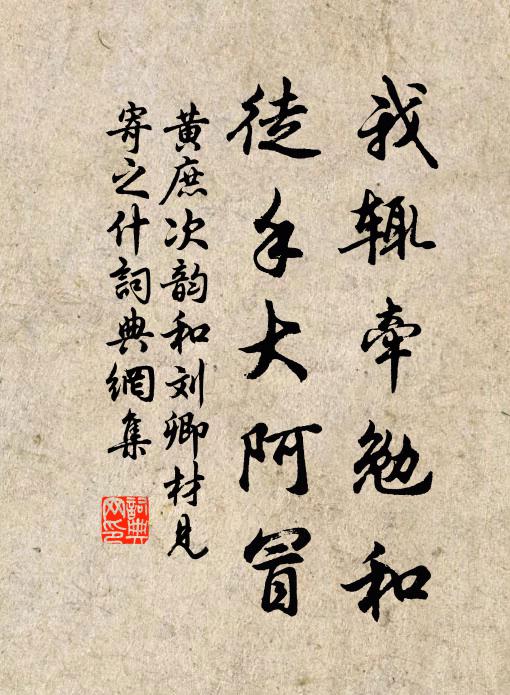 我辄牵勉和
徒手大阿冒
黄庶次韵和刘卿材见
寄之什詞典網集
詞典
网印